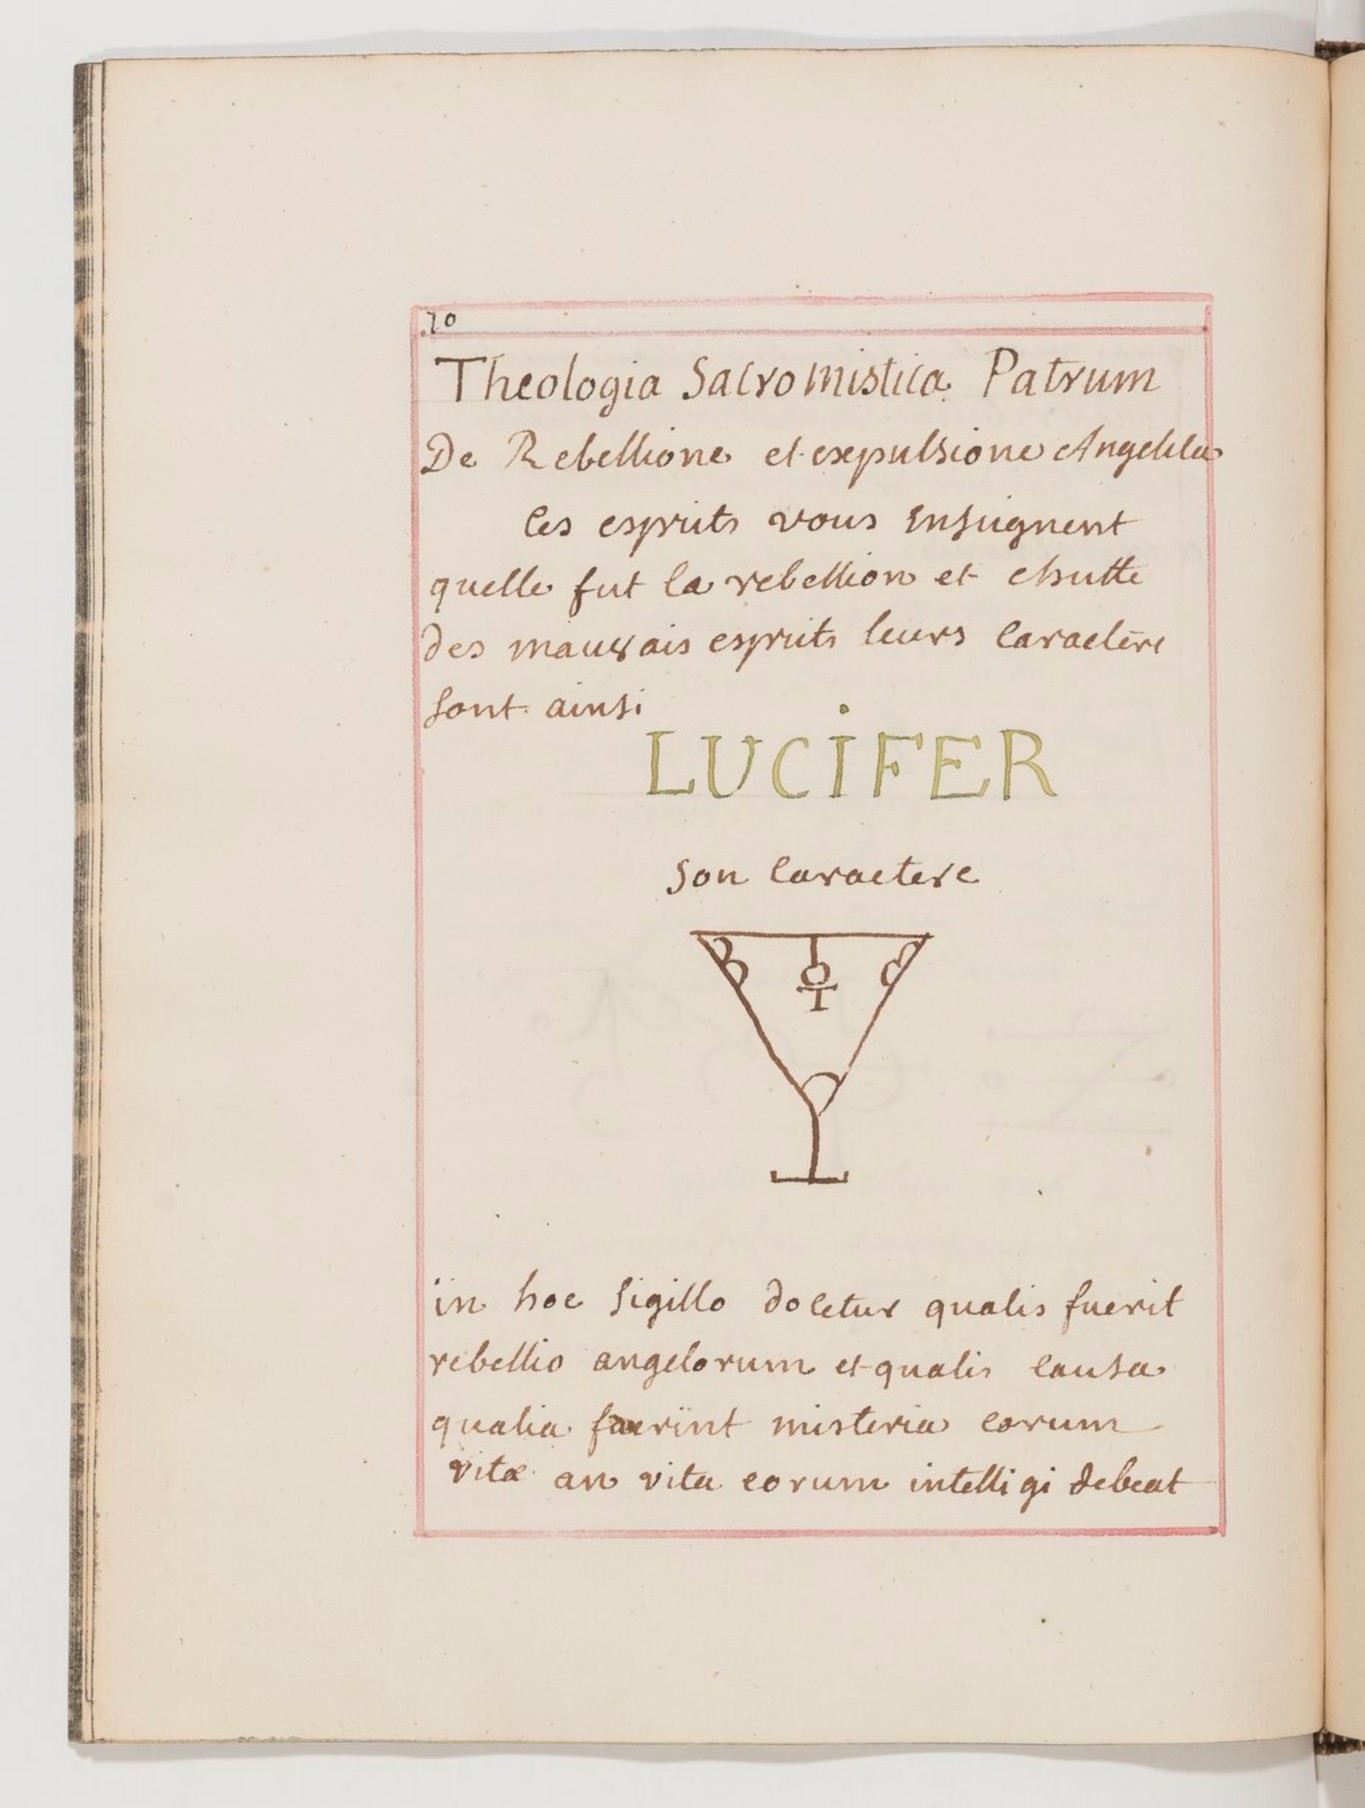 10
Theologia Sacromistica Patrum
De Rebellione et expulsione
Ces esprits vous Enseignent
quelle fut la rebellion et chutte
des mauvais esprits leurs Caractere
sont ainsi
LUCIFER
Son Caractere
in hoc sigillo docetur qualis fuerit
rebellio angelorum et qualis causa
qualia fuerint misteria eorum
vitæ an vita eorum intelligi debeat